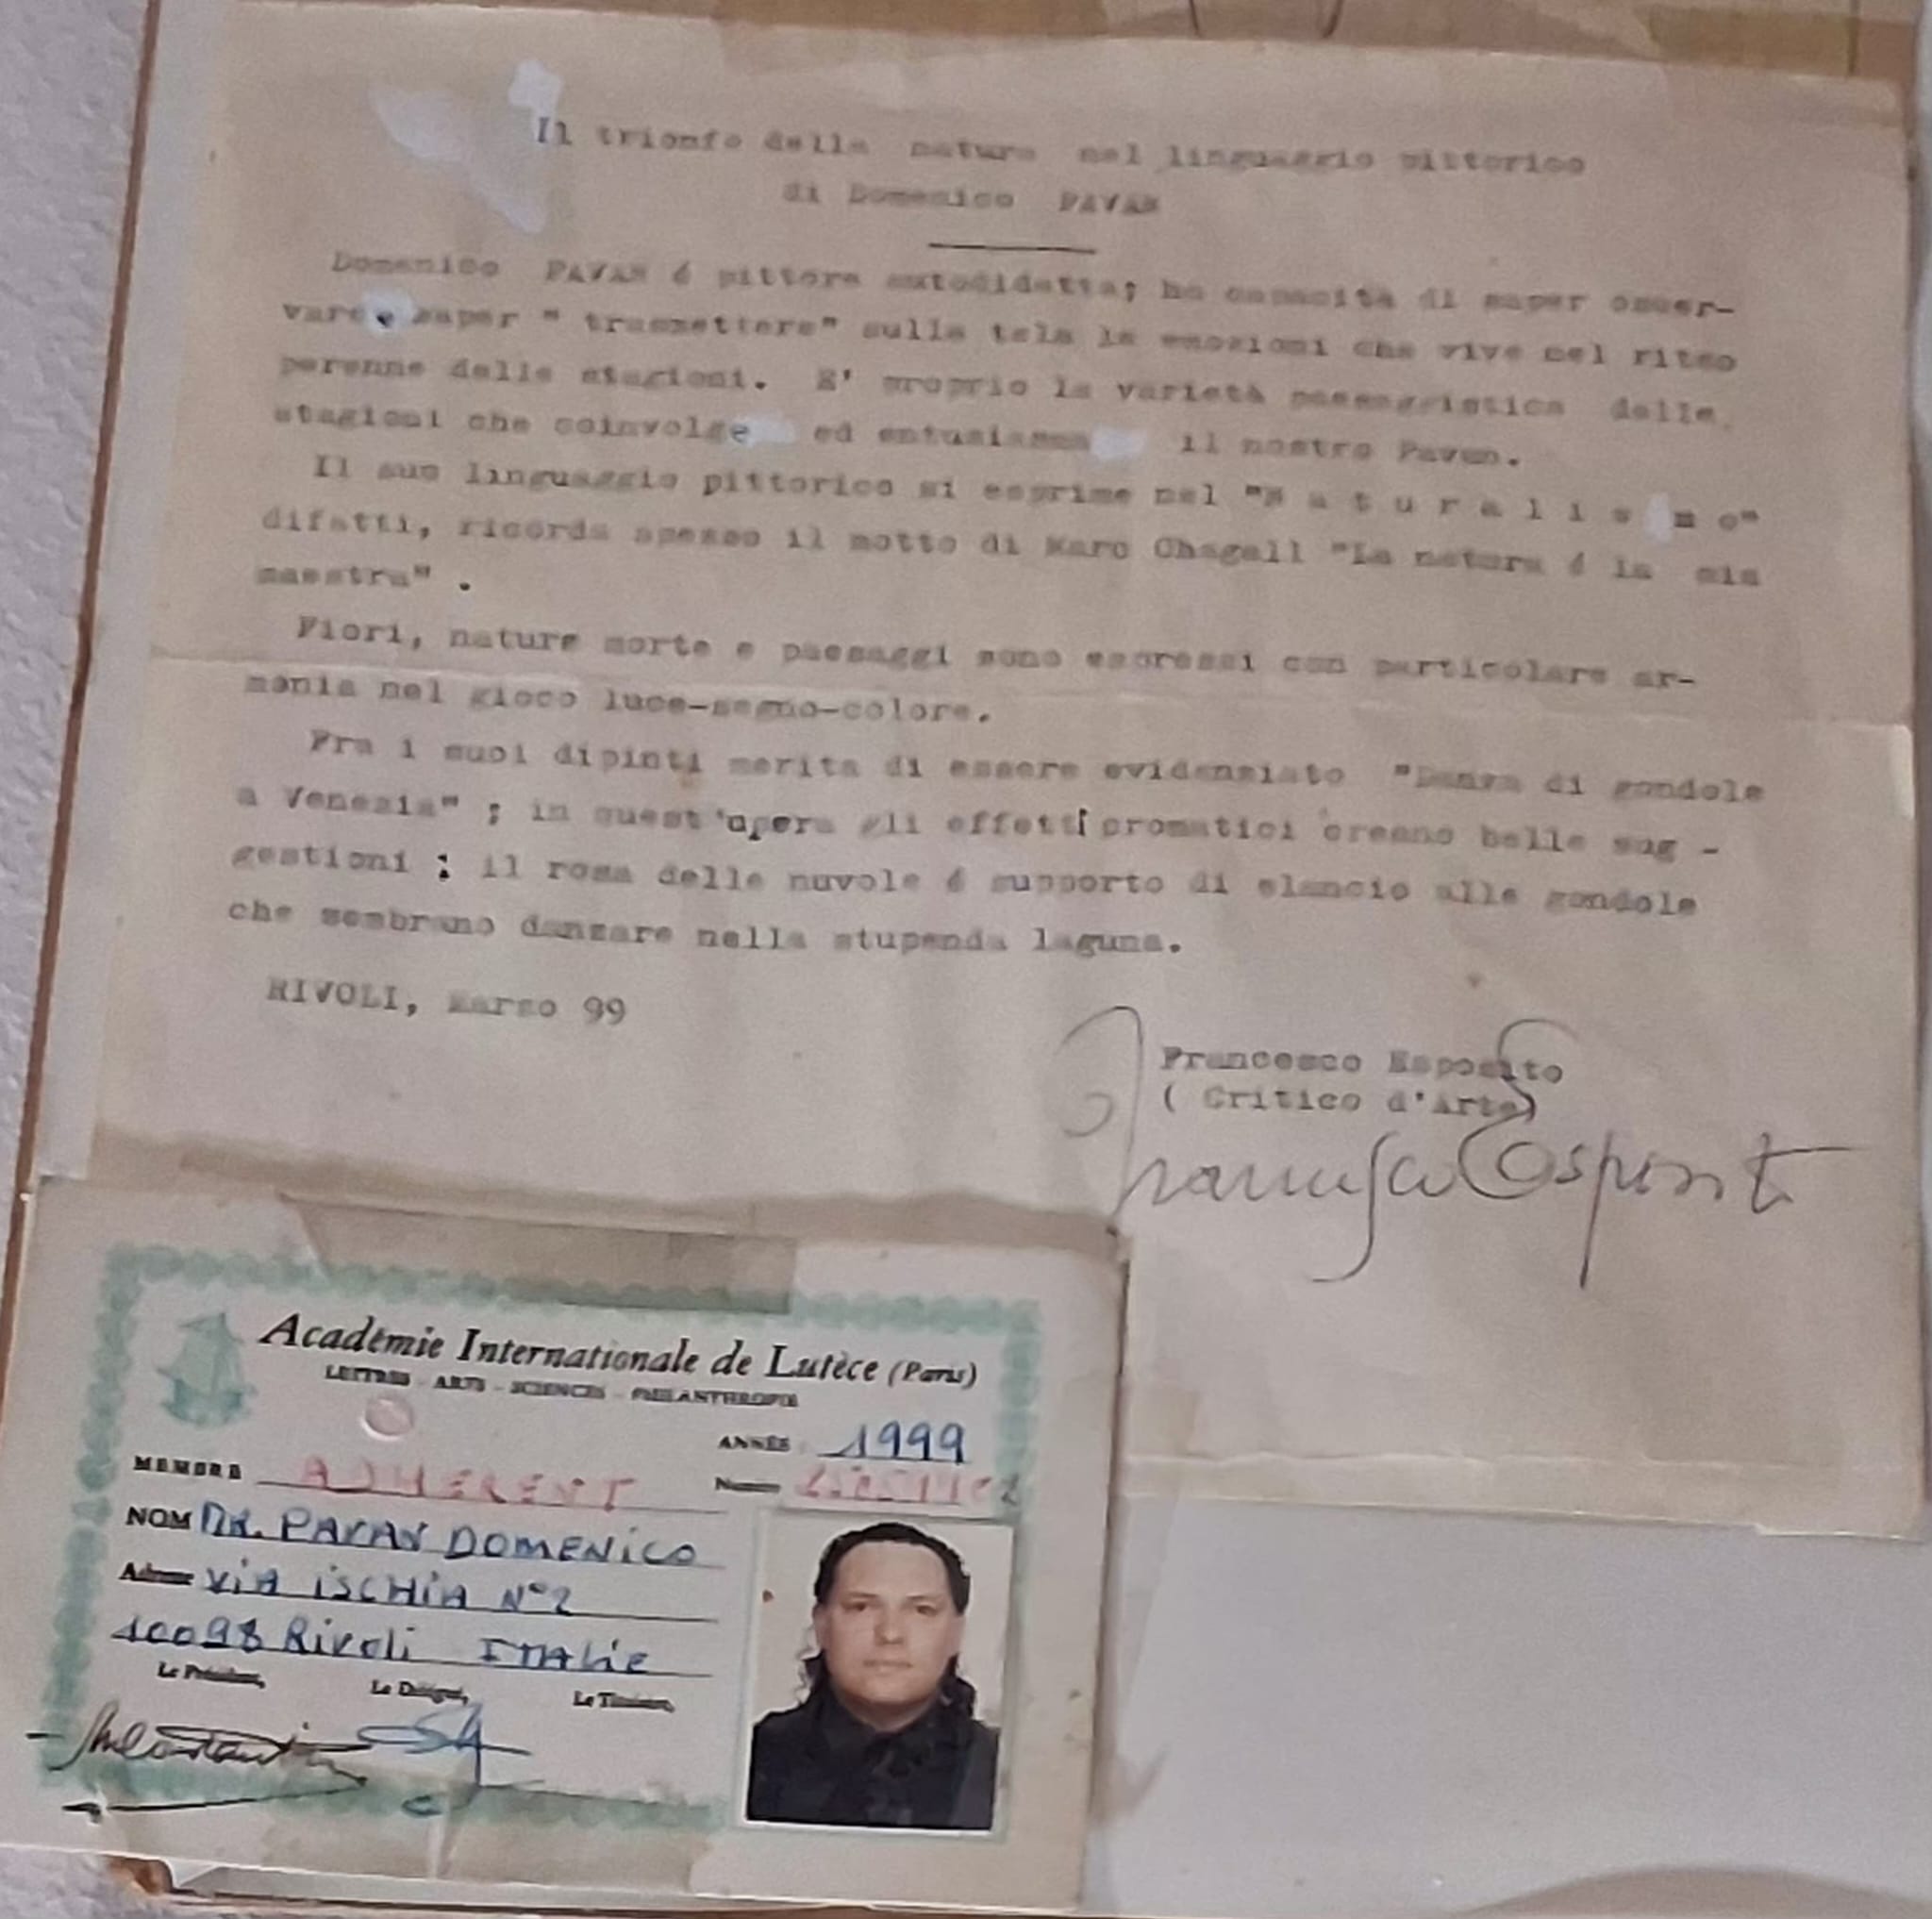 Il trionfo della natura nel linguaggio pittorico
di Domenico PAVAN
Domenico PAVAN é pittore autodidatta; ha capacità di saper osser-
vare e saper " trasmettere" sulla tela le emozioni che vive nel ritmo
perenne delle stagioni. E' proprio la varietà paesaggistica delle
stagioni che coinvolge ed entusiasma il nostro Pavan.
Il suo linguaggio pittorico si esprime nel "N a t u r a l i s m o"
difatti, ricorda spesso il motto di Marc Chagall "La natura é la mia
maestra" .
Fiori, nature morte e paesaggi sono espressi con particolare ar-
monia nel gioco luce-segno-colore.
Fra i suoi dipinti merita di essere evidenziato "Danza di gondole
a Venezia" ; in quest'opera gli effetti cromatici creano belle sug -
gestioni : il rosa delle nuvole é supporto di slancio alle gondole
che sembrano danzare nella stupenda laguna.
RIVOLI, Marzo 99
Francesco Esposito
( Critico d'Arte)
Francesco Esposito
Académie Internationale de Lutèce (Paris)
LETTRES - ARTS - SCIENCES - PHILANTHROPIE
ANNÉE 1999
MEMBRE ADHERENT
NOM DR. PAVAN DOMENICO
Adresse VIA ISCHIA N°2
10098 Rivoli ITALIE
Le Président, Le Délégué, Le Titulaire,